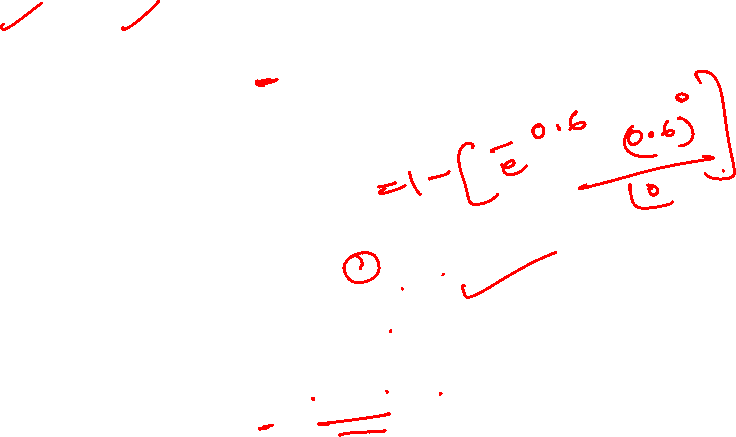 = 1 - [ e^-0.6 (0.6)^0 / ⌊0 ]
①